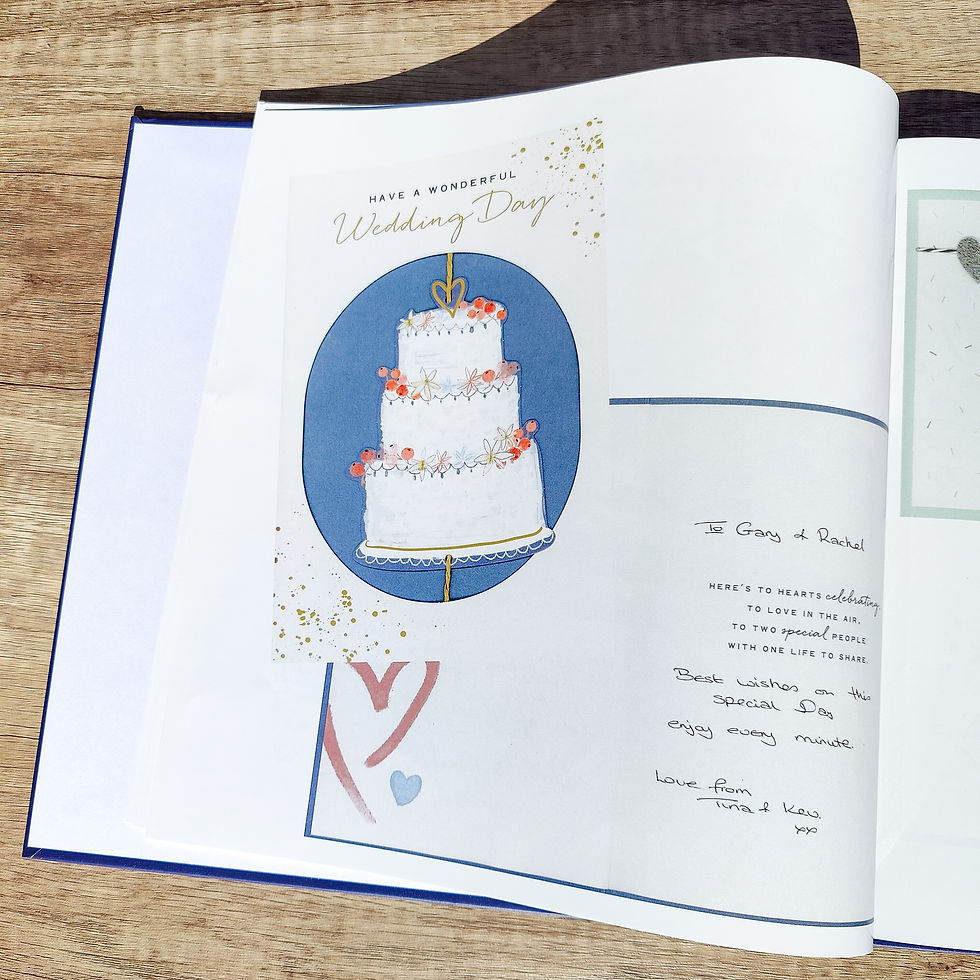 HAVE A WONDERFUL
Wedding Day
To Gary & Rachel
HERE'S TO HEARTS celebrating,
TO LOVE IN THE AIR,
TO TWO special PEOPLE
WITH ONE LIFE TO SHARE.
Best wishes on this
special Day
enjoy every minute.
Love from
Tina & Kev.
xx